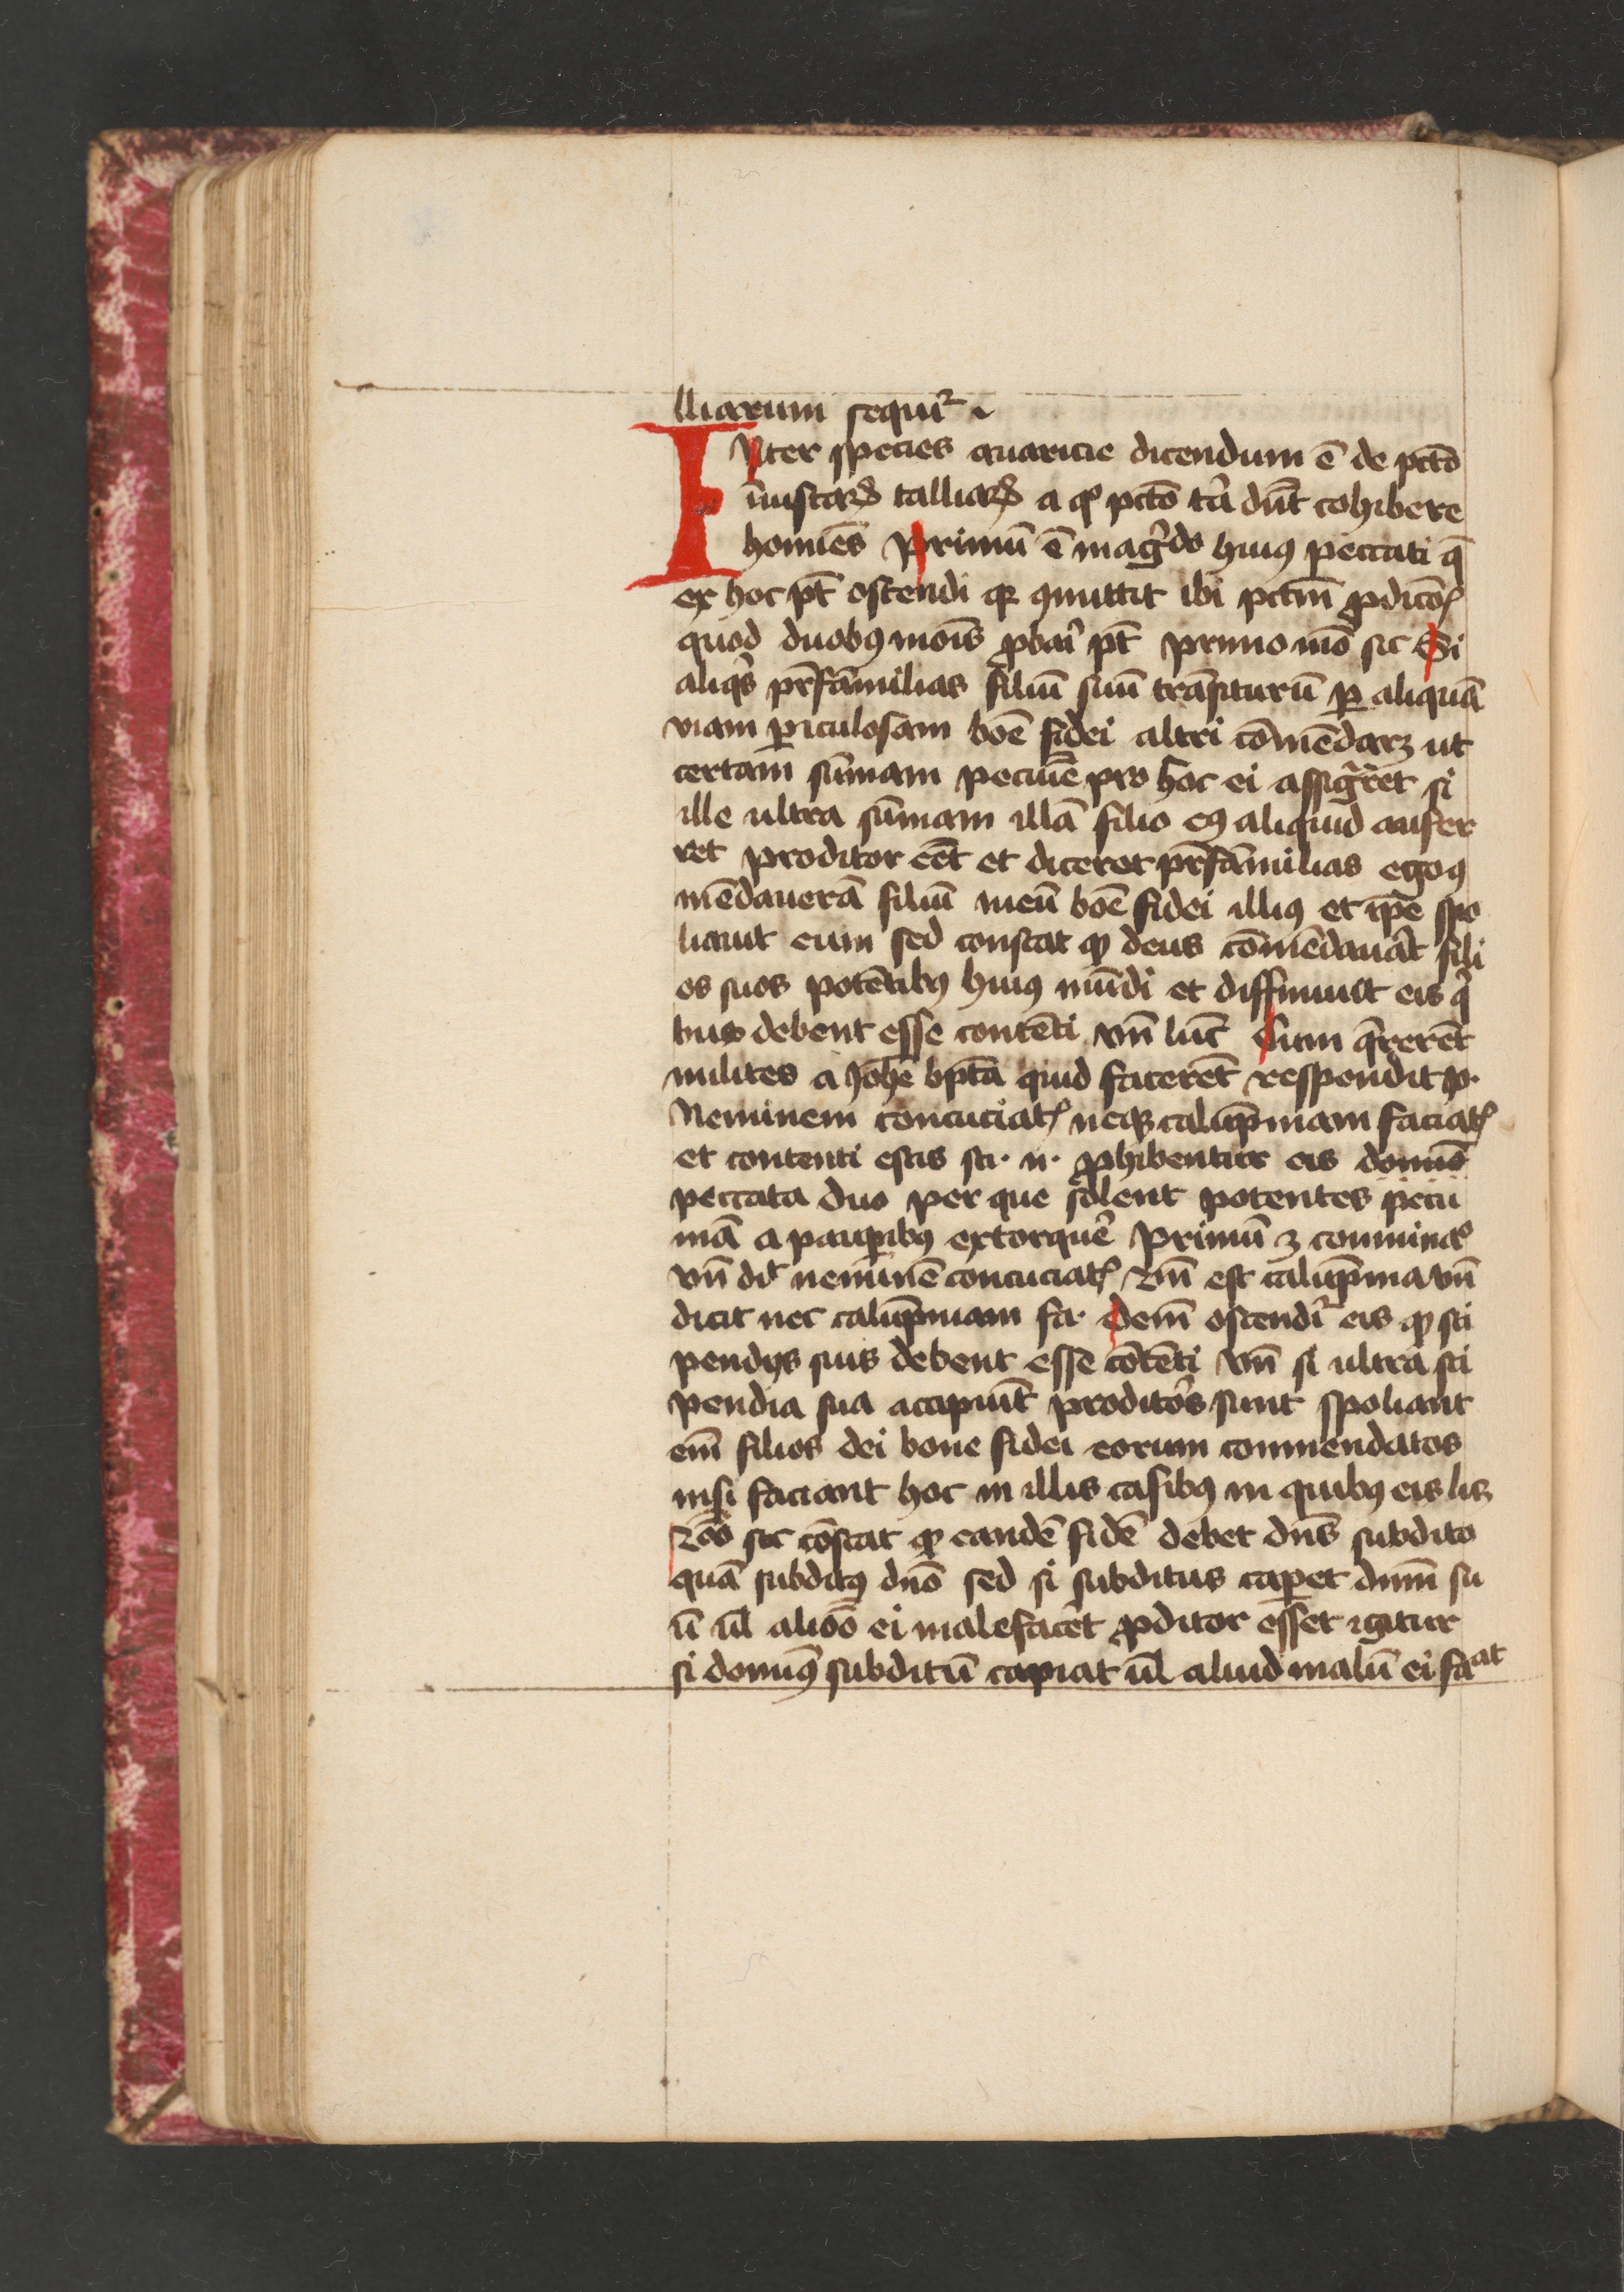 lliarum sequit᷑
INter species auaricie dicendum ē de pctō
iniustaꝝ talliaꝝ a qͦ pctō tͥa dn̄t cohibere
homīes Primū ē magͥdo huiꝰ peccati q̄
ex hoc pt̄ ostendi qꝛ ꝯmittit ibi pctm̄ ꝓdicōꝭ
quod duobꝰ moīs ꝓbaͥ pt̄ primo mō sic Si
aliqͥs pr̄familias filiū suū trāsiturū ꝑ aliquā
viam ꝑiculosam boē fidei altri cōmēdarꝫ ut
certam sūmam pecuīe pro hoc ei assigͣret si
ille ultra sūmam illā filio eꝰ aliquid aufer
ret proditor eēt et diceret pr̄familias ego ꝯ
mēdauerā filiū meū boē fidei illiꝰ et ip̄e spo
liauit eum sed constat ꝙ deus cōmēdauit fili
os suos potētibꝰ huiꝰ mūdi et diffiniuit eis qͥ
bus debent esse contēti vn̄ luc̄ Cum q̄rerēt
milites a Joh̄e bpta quid facerēt respondit ꝙ
Neminem concuciatꝭ neqꝫ calūpniam faciatꝭ
et contenti estis sti· n· ꝓhibentur eis
peccata duo per que solent potentes pecu
niā a paupibꝰ extorquē Primū ꝫ comminaͦ
vn̄ dt̄ neminē concuciatꝭ 2m̄ est calūpnia vn̄
dicit nec calūpniam fa· Demū ostendit᷑ eis ꝙ sti
pendijs suis debent esse cōtēti vn̄ si ultra sti
pendia sua accipiūt proditoͤs sunt spoliant
em̄ filios dei bone fidei eorum commendatos
nisi faciant hoc in illis casibꝰ in quibꝰ eis lꝫ
2ͦo sic cōstat ꝙ eandē fidē debet dn̄s subdito
quā subditꝰ dn̄o sed si subditus caperet dnm̄ su
ū ul̄ alioͦo ei malefacēt ꝓditor esset igitur
si domiꝰ subditū capiat ul̄ aliud malū ei faciat